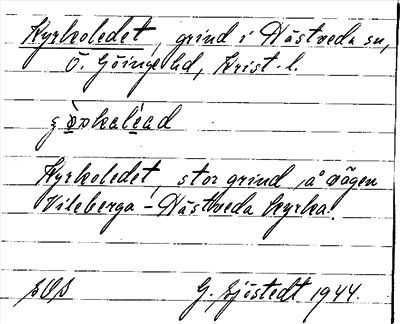 Kyrkoledet, grind i Hästveda sn,
Ö. Göinge hd, Krist. l.
Kyrkoledet, stor grind å vägen
Vileberga - Hästveda kyrka.
G. Sjöstedt 1944.